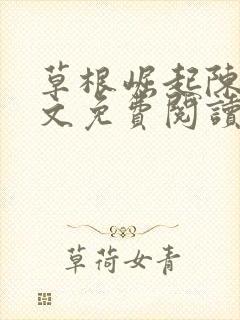 草根崛起陳
文免費閱讀
草荷女青